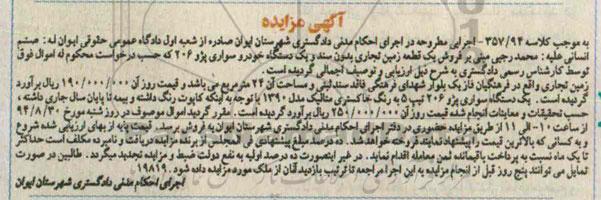 آگهی مزایده
به موجب کلاسه ۳۵۷/۹۴ - اجرایی مطروحه در اجرای احکام مدنی دادگستری شهرستان ایوان صادره از شعبه اول دادگاه عمومی حقوقی ایوان له : صنم
انسانی علیه : محمد رجبی مبنی بر فروش یک قطعه زمین تجاری بدون سند و یک دستگاه خودرو سواری پژو ۲۰۶ که حسب درخواست محکوم له اموال فوق
توسط کارشناس رسمی دادگستری به شرح ذیل ارزیابی و توصیف اجمالی گردیده است .
زمین تجاری واقع در فرهنگیان فاز یک بلوار شهدای فرهنگی فاقد سند ثبتی و مساحت آن ۲۴ مترمربع می باشد و قیمت روز آن ۱۹۰/۰۰۰/۰۰۰ ریال برآورد
گردیده است . یک دستگاه سواری پژو ۲۰۶ تیپ ۵ به رنگ خاکستری متالیک مدل ۱۳۹۰ با توجه به اینکه کاپوت رنگ داشته و بیمه تا پایان سال جاری داشته ،
حسب تحقیقات و معاینات انجام شده قیمت روز آن ۲۵۰/۰۰۰/۰۰۰ ریال برآورد گردیده است . مقرر گردید اموال موصوف در روز شنبه مورخ ۹۴/۸/۳۰
از ساعت ۱۰ الی ۱۱ از طریق مزایده حضوری در دفتر اجرای احکام مدنی دادگستری شهرستان ایوان به فروش برسد . قیمت پایه از بهای ارزیابی شده شروع
و به کسانی که بالاترین قیمت را پیشنهاد نمایند فروخته خواهد شد . ده درصد مبلغ پیشنهادی فی المجلس از برنده مزایده دریافت و نامبرده مکلف است حداکثر
تا یک ماه نسبت به پرداخت باقیمانده ثمن معامله اقدام نماید . در غیر اینصورت ده درصد اولیه به نفع دولت ضبط و مزایده تجدید میگردد . طالبین در صورت
تمایل می توانند پنج روز قبل از انجام مزایده به این اجرا مراجعه تا ترتیب بازدید آنان از ملک مورد مزایده داده شود . ۱۹۸۱۹
اجرای احکام مدنی دادگستری شهرستان ایوان